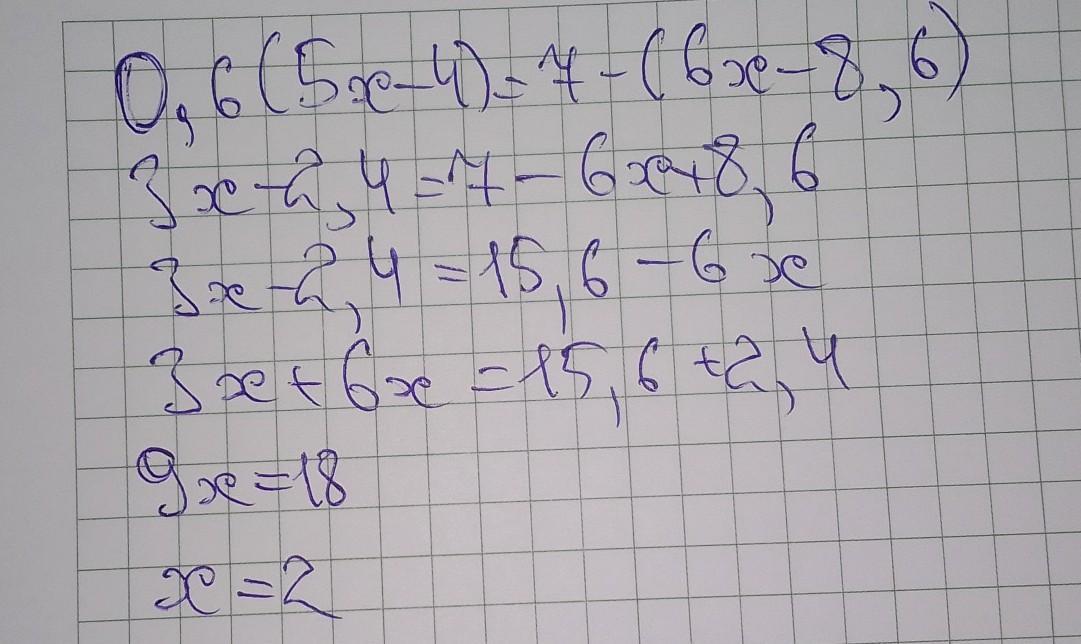 0,6(5x-4)=7-(6x-8,6)
3x-2,4=7-6x+8,6
3x-2,4=15,6-6x
3x+6x=15,6+2,4
9x=18
x=2